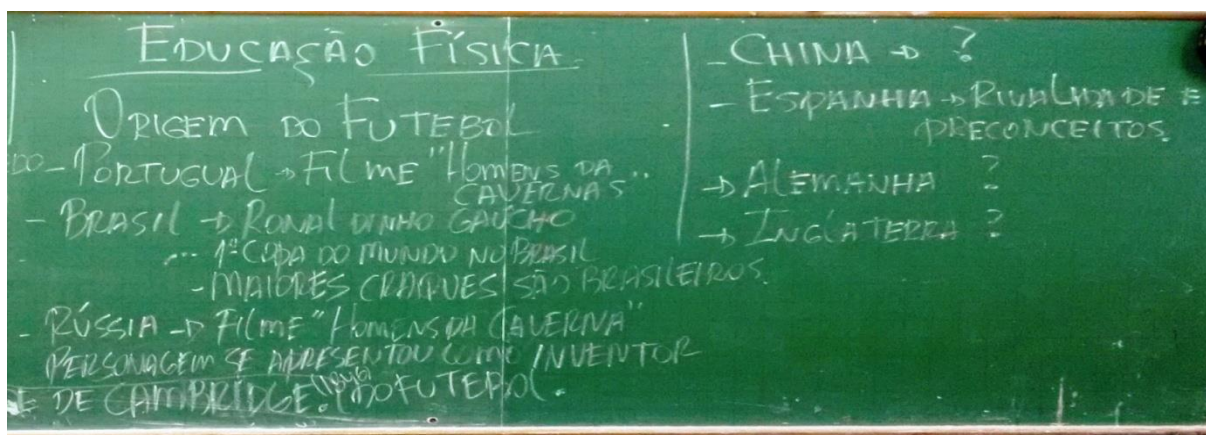 EDUCAÇÃO FÍSICA
ORIGEM DO FUTEBOL
DO - PORTUGUAL → FILME "HOMENS DA
CAVERNAS"
- BRASIL → RONALDINHO GAÚCHO
1ª COPA DO MUNDO NO BRASIL
- MAIORES CRAQUES SÃO BRASILEIROS.
- RÚSSIA → FILME "HOMENS DA CAVERNA"
PERSONAGEM SE APRESENTOU COMO INVENTOR
DO FUTEBOL.
E DE CAMBRIDGE.
- CHINA → ?
- ESPANHA → RIVALIDADE E
PRECONCEITOS.
→ ALEMANHA ?
→ INGLATERRA ?